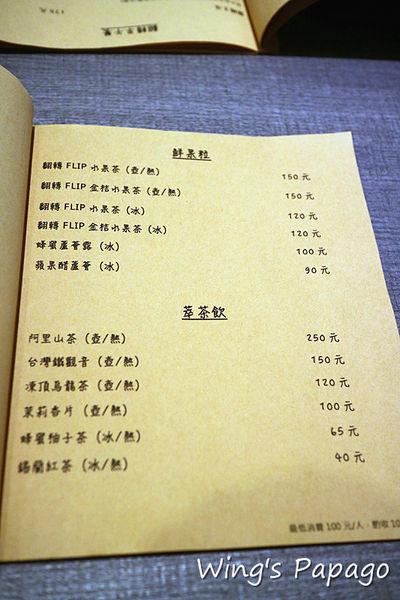 175元
翻轉早午餐
鮮果粒
翻轉 FLIP 水果茶 (壺/熱) 150 元
翻轉 FLIP 金桔水果茶 (壺/熱) 150 元
翻轉 FLIP 水果茶 (冰) 120 元
翻轉 FLIP 金桔水果茶 (冰) 120 元
蜂蜜蘆薈露 (冰) 100 元
蘋果醋蘆薈 (冰) 90 元
萃茶飲
阿里山茶 (壺/熱) 250 元
台灣鐵觀音 (壺/熱) 150 元
凍頂烏龍茶 (壺/熱) 120 元
茉莉香片 (壺/熱) 100 元
蜂蜜柚子茶 (冰/熱) 65 元
錫蘭紅茶 (冰/熱) 40 元
最低消費 100 元/人，酌收 10
Wing's Papago